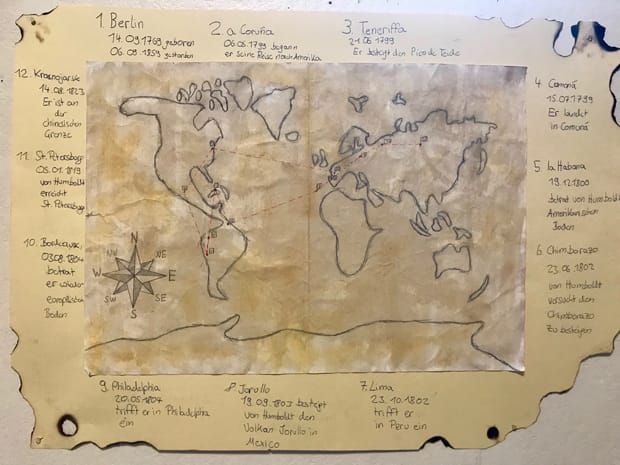 1 Berlin
14.09.1769 geboren
06.09.1859 gestorben
2. a Coruña
06.06.1799 begann
er seine Reise nach Amerika
3. Teneriffa
21.06 1799
Er besteigt den Pico de Teide
4. Comaná
15.07.1799
Er landet
in Comaná
5. la Habana
19.12.1800
betrat von Humboldt
Amerikanischen
Boden
6. Chimborazo
23.06.1802
von Humboldt
versucht den
Chimborazo
zu besteigen
7. Lima
23.10.1802
trifft er
in Peru ein
8. Jorullo
19.09.1803 besteigt
von Humboldt den
Volkan Jorullo in
Mexico
9. Philadelphia
20.05.1804
trifft er in Philadelphia
ein
10. Bordeaux
03.08.1804
betrat
er wieder
europäischen
Boden
11. St. Petersburg
von Humboldt
erreicht
St. Petersburg
12. Krasnojarsk
14.08.1823
Er ist an
der
chinesischen
Grenze
N
NE
E
SE
S
SW
W
NW